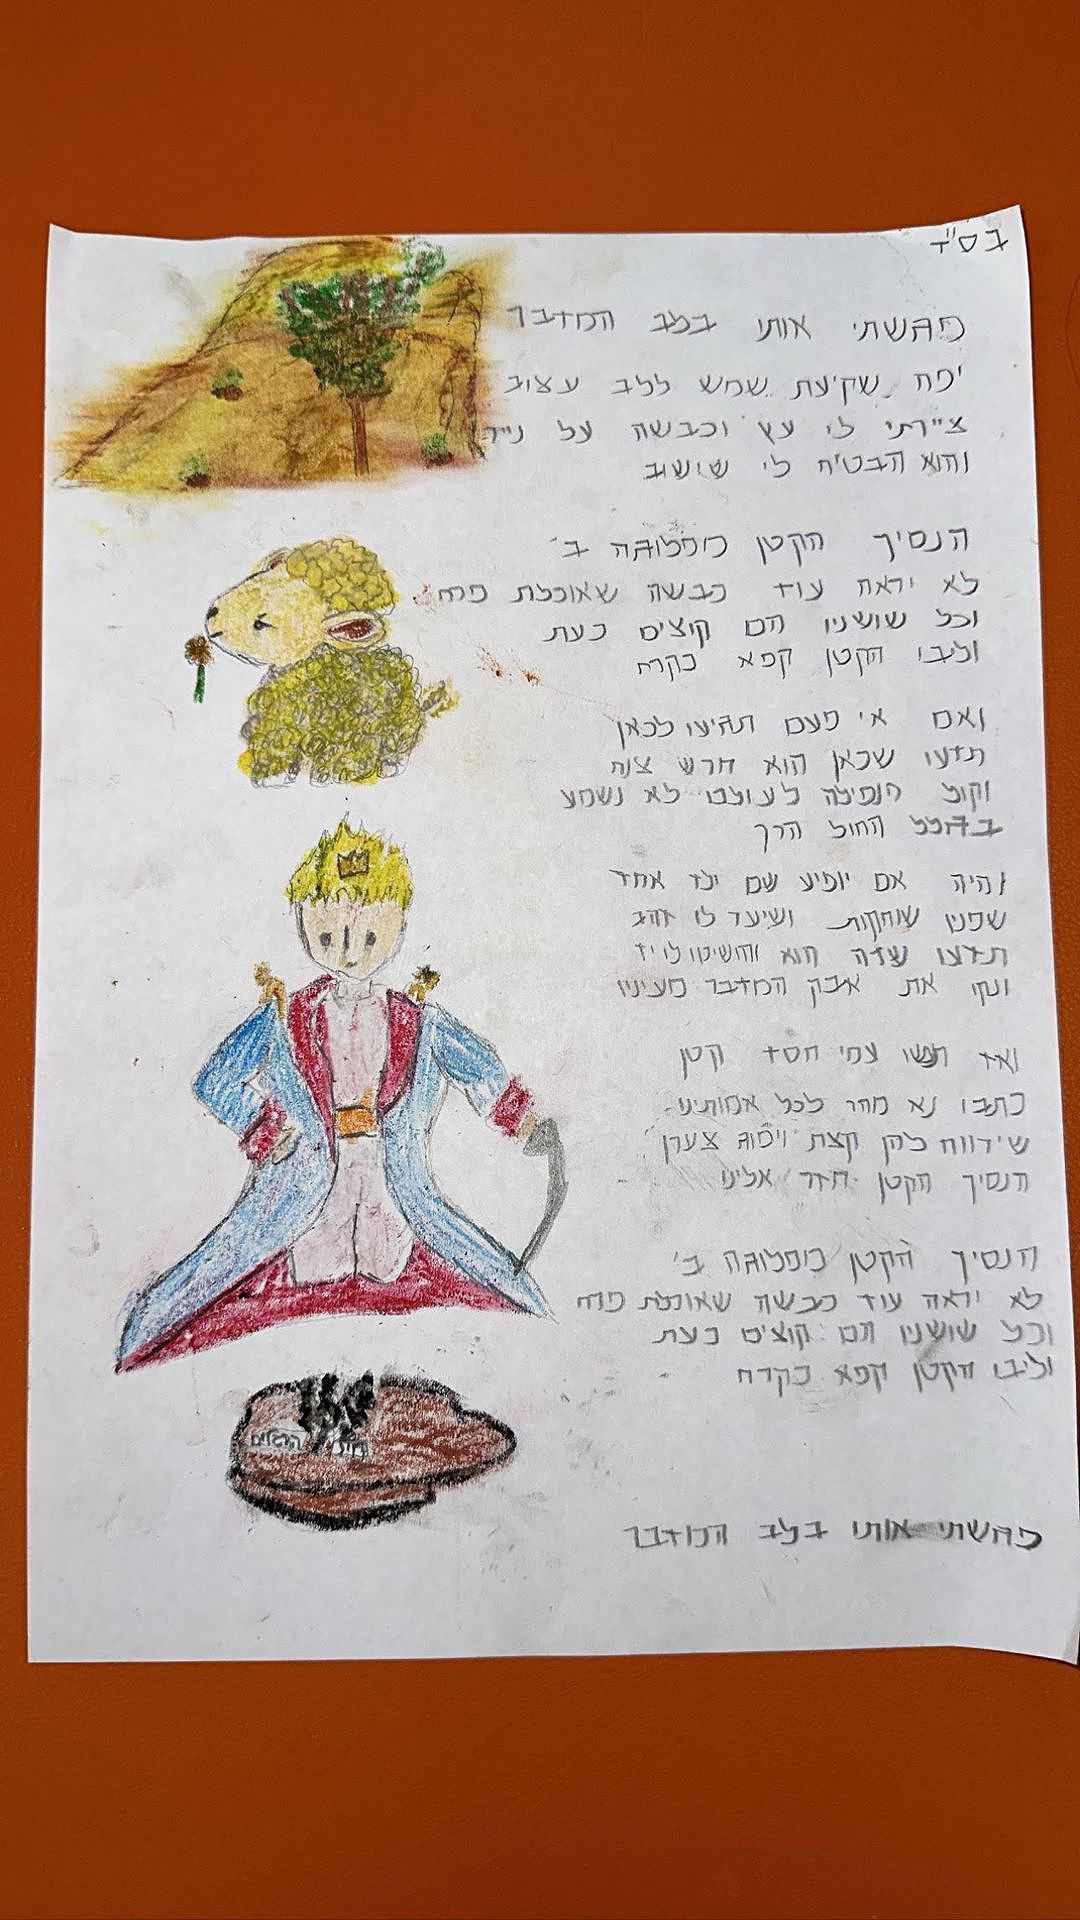 בס"ד
פגשתי אותי בלב המדבר
יפה שקיעת שמש ללב עצוב
ציירתי לי עץ וכבשה על נייר
והוא הבטיח לי שישוב
הנסיך הקטן מפלוגה ב'
לא יראה עוד כבשה שאוכלת פרח
וכל שושניו הם קוצים כעת
וליבו הקטן קפא כקרח
ואם אי פעם תגיעו לכאן
תדעו שכאן הוא חרש צנח
וקול הנפילה לעולם לא נשמע
בגלל החול הרך
והיה אם יופיע שם ילד אחד
שפניו שוחקות ושיער לו זהב
תדעו שזה הוא והושיטו לו יד
ונקו את אבק המדבר מעיניו
ואז תעשו עמי חסד קטן
כתבו נא מהר לכל אמותינו
שירווח להן קצת ויפוג צערן
הנסיך הקטן חזר אלינו
הנסיך הקטן מפלוגה ב'
לא יראה עוד כבשה שאוכלת פרח
וכל שושניו הם קוצים כעת
וליבו הקטן קפא כקרח
פגשתי אותי בלב המדבר